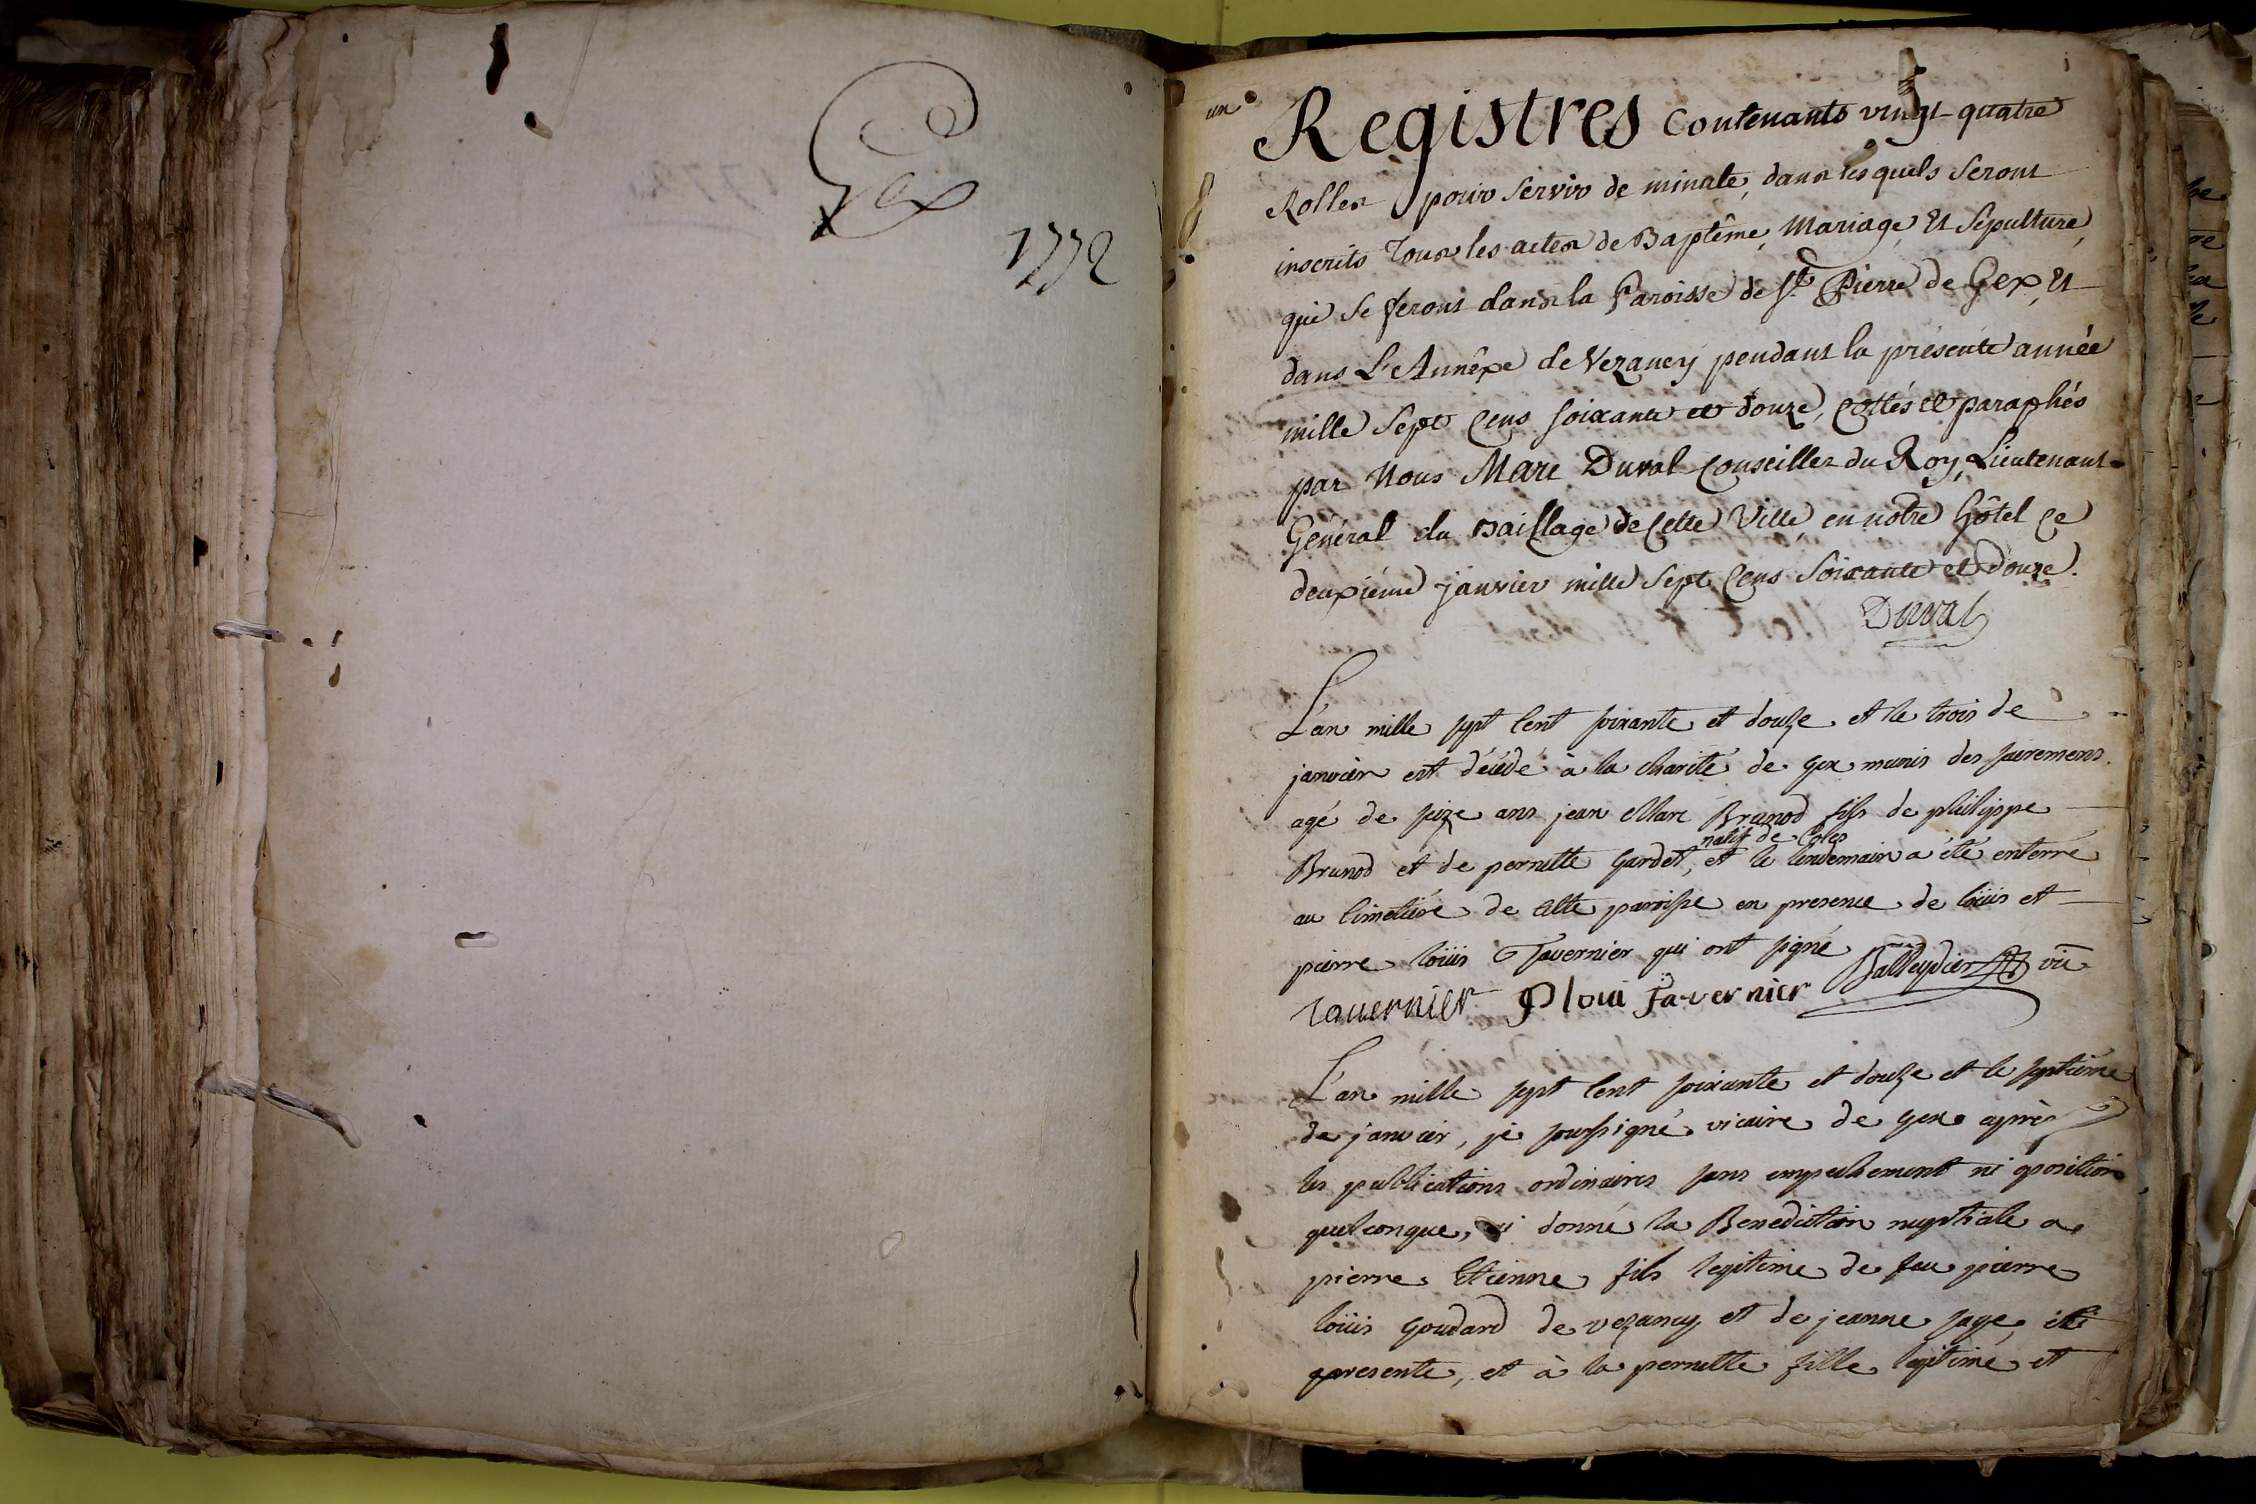 Gex
1772
un
Registres Contenants vingt-quatre
Rolles pour servir de minute, dans lesquels seront
inscrits Tous les actes de Baptême, Mariage, Et Sépulture,
qui se feront dans la Paroisse de St. Pierre de Gex, Et
dans L'Annêxe de Vezancy pendant la présente année
mille Sept Cens soixante et douze, Cottés et paraphés
par Nous Marc Duval Conseiller du Roy, Lieutenant
Général du Baillage de Cette Ville, en notre hôtel Ce
deuxiéme janvier mille Sept Cens Soixante et Douze.
Duval
L'an mille sept Cent soixante et douze et le trois de
janvier est décédé à la charité de gex munis des sacremens
agé de seize ans jean Marc Brunod fils de philippe
natif de
Brunod et de pernette gardet, et le lendemain a été enterré
au Cimetiére de cette paroisse en presence de loüis et
pierre loüis Tavernier qui ont signé Balleydier vic
Tavernier P loui Tavernier
L'an mille sept Cent soixante et douze et le septiéme
de janvier, je soussigné vicaire de gex après
les publications ordinaires sans empechement ni oposition
quelconque, ai donné la Benediction nuptiale a
pierre Etienne fils legitime de feu pierre
loüis goudard de vezancy et de jeanne sage, ici
presente, et à la pernette fille legitime et